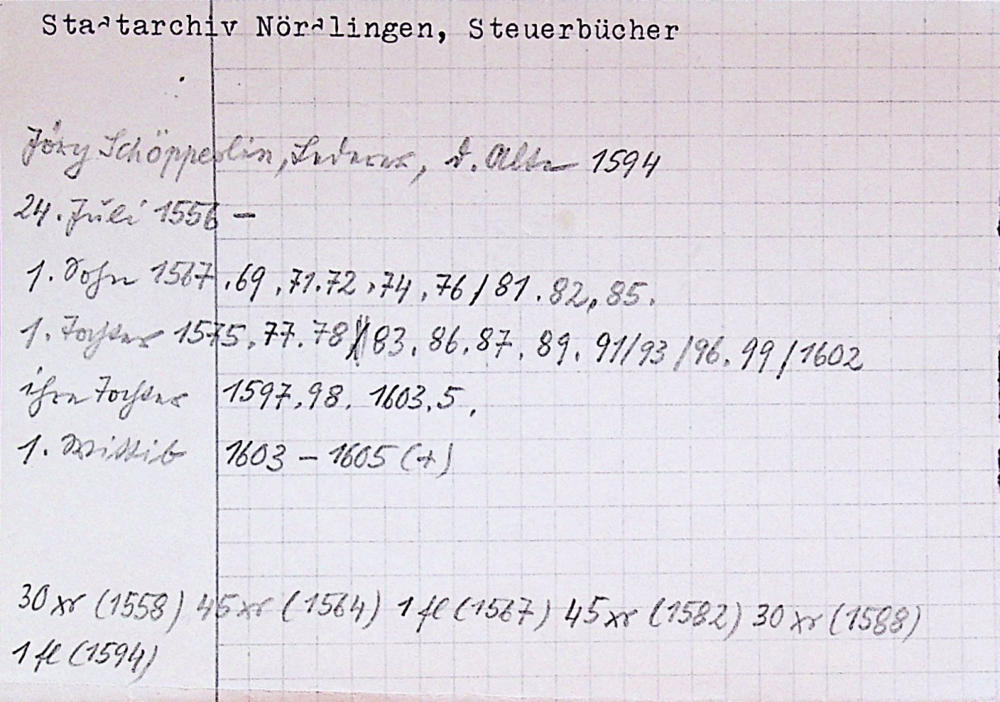 Stadtarchiv Nördlingen, Steuerbücher
Jörg Schöpperlin, Lederer, d. Alte 1594
24. Juli 1556 –
1. Sohn 1567, 69, 71. 72, 74, 76/81. 82, 85.
1. Tochter 1575, 77. 78 83. 86. 87. 89. 91/93/96. 99/1602
ihre Tochter 1597, 98. 1603, 5.
1. Wittib 1603 – 1605 (+)
30 xr (1558) 45 xr (1564) 1 fl (1567) 45 xr (1582) 30 xr (1588)
1 fl (1594)